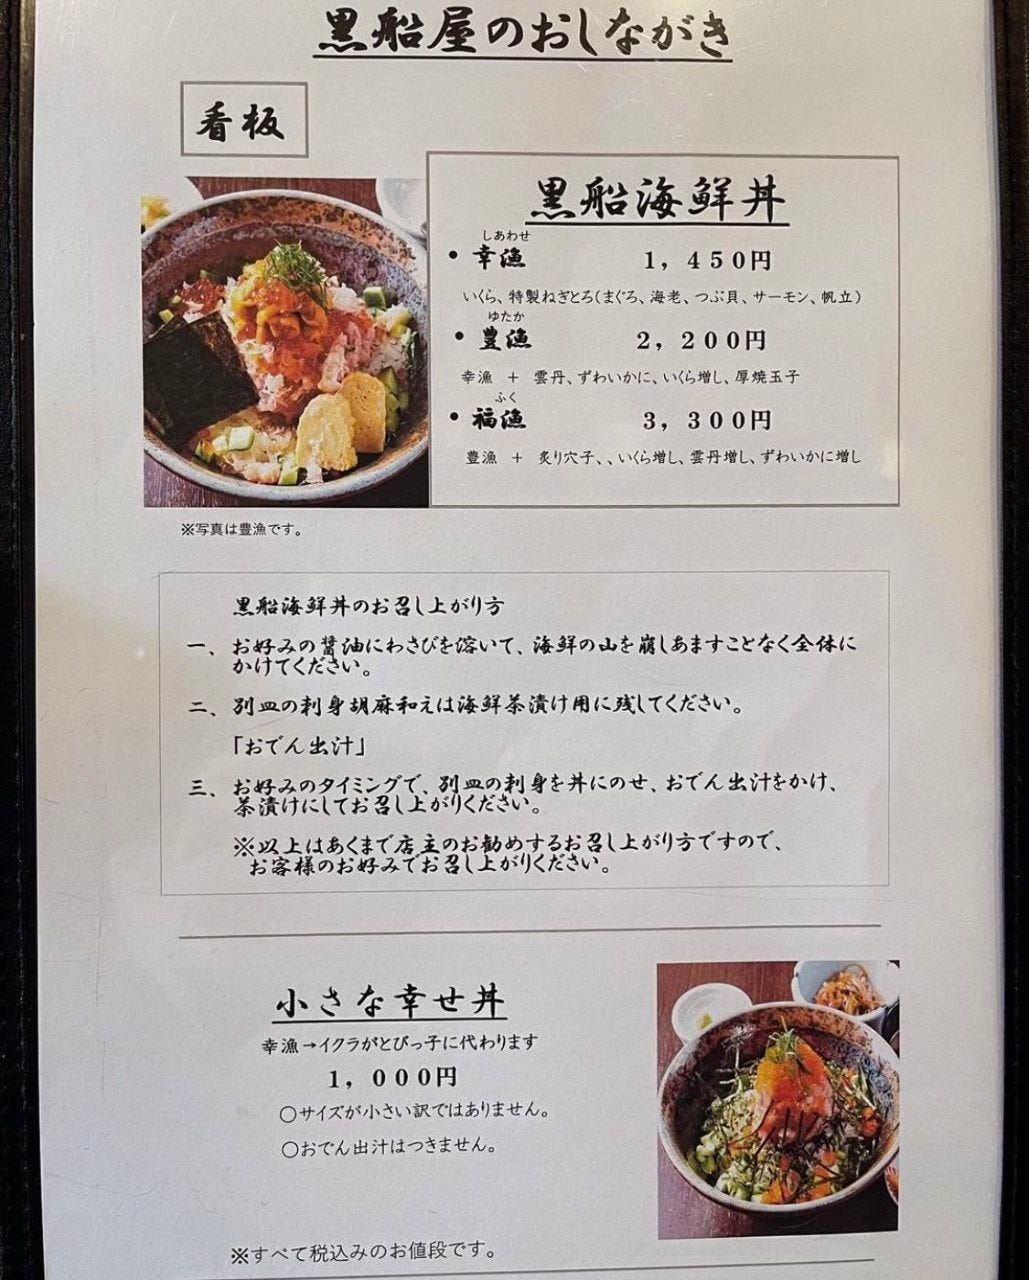 黒船屋のおしながき
看板
黒船海鮮丼
しあわせ
・幸漁 1,450円
いくら、特製ねぎとろ(まぐろ、海老、つぶ貝、サーモン、帆立)
ゆたか
・豊漁 2,200円
幸漁 + 雲丹、ずわいかに、いくら増し、厚焼玉子
ふく
・福漁 3,300円
豊漁 + 炙り穴子、、いくら増し、雲丹増し、ずわいかに増し
※写真は豊漁です。
黒船海鮮丼のお召し上がり方
一、お好みの醤油にわさびを溶いて、海鮮の山を崩しあますことなく全体に
かけてください。
二、別皿の刺身胡麻和えは海鮮茶漬け用に残してください。
「おでん出汁」
三、お好みのタイミングで、別皿の刺身を丼にのせ、おでん出汁をかけ、
茶漬けにしてお召し上がりください。
※以上はあくまで店主のお勧めするお召し上がり方ですので、
お客様のお好みでお召し上がりください。
小さな幸せ丼
幸漁→イクラがとびっ子に代わります
1,000円
○サイズが小さい訳ではありません。
○おでん出汁はつきません。
※すべて税込みのお値段です。